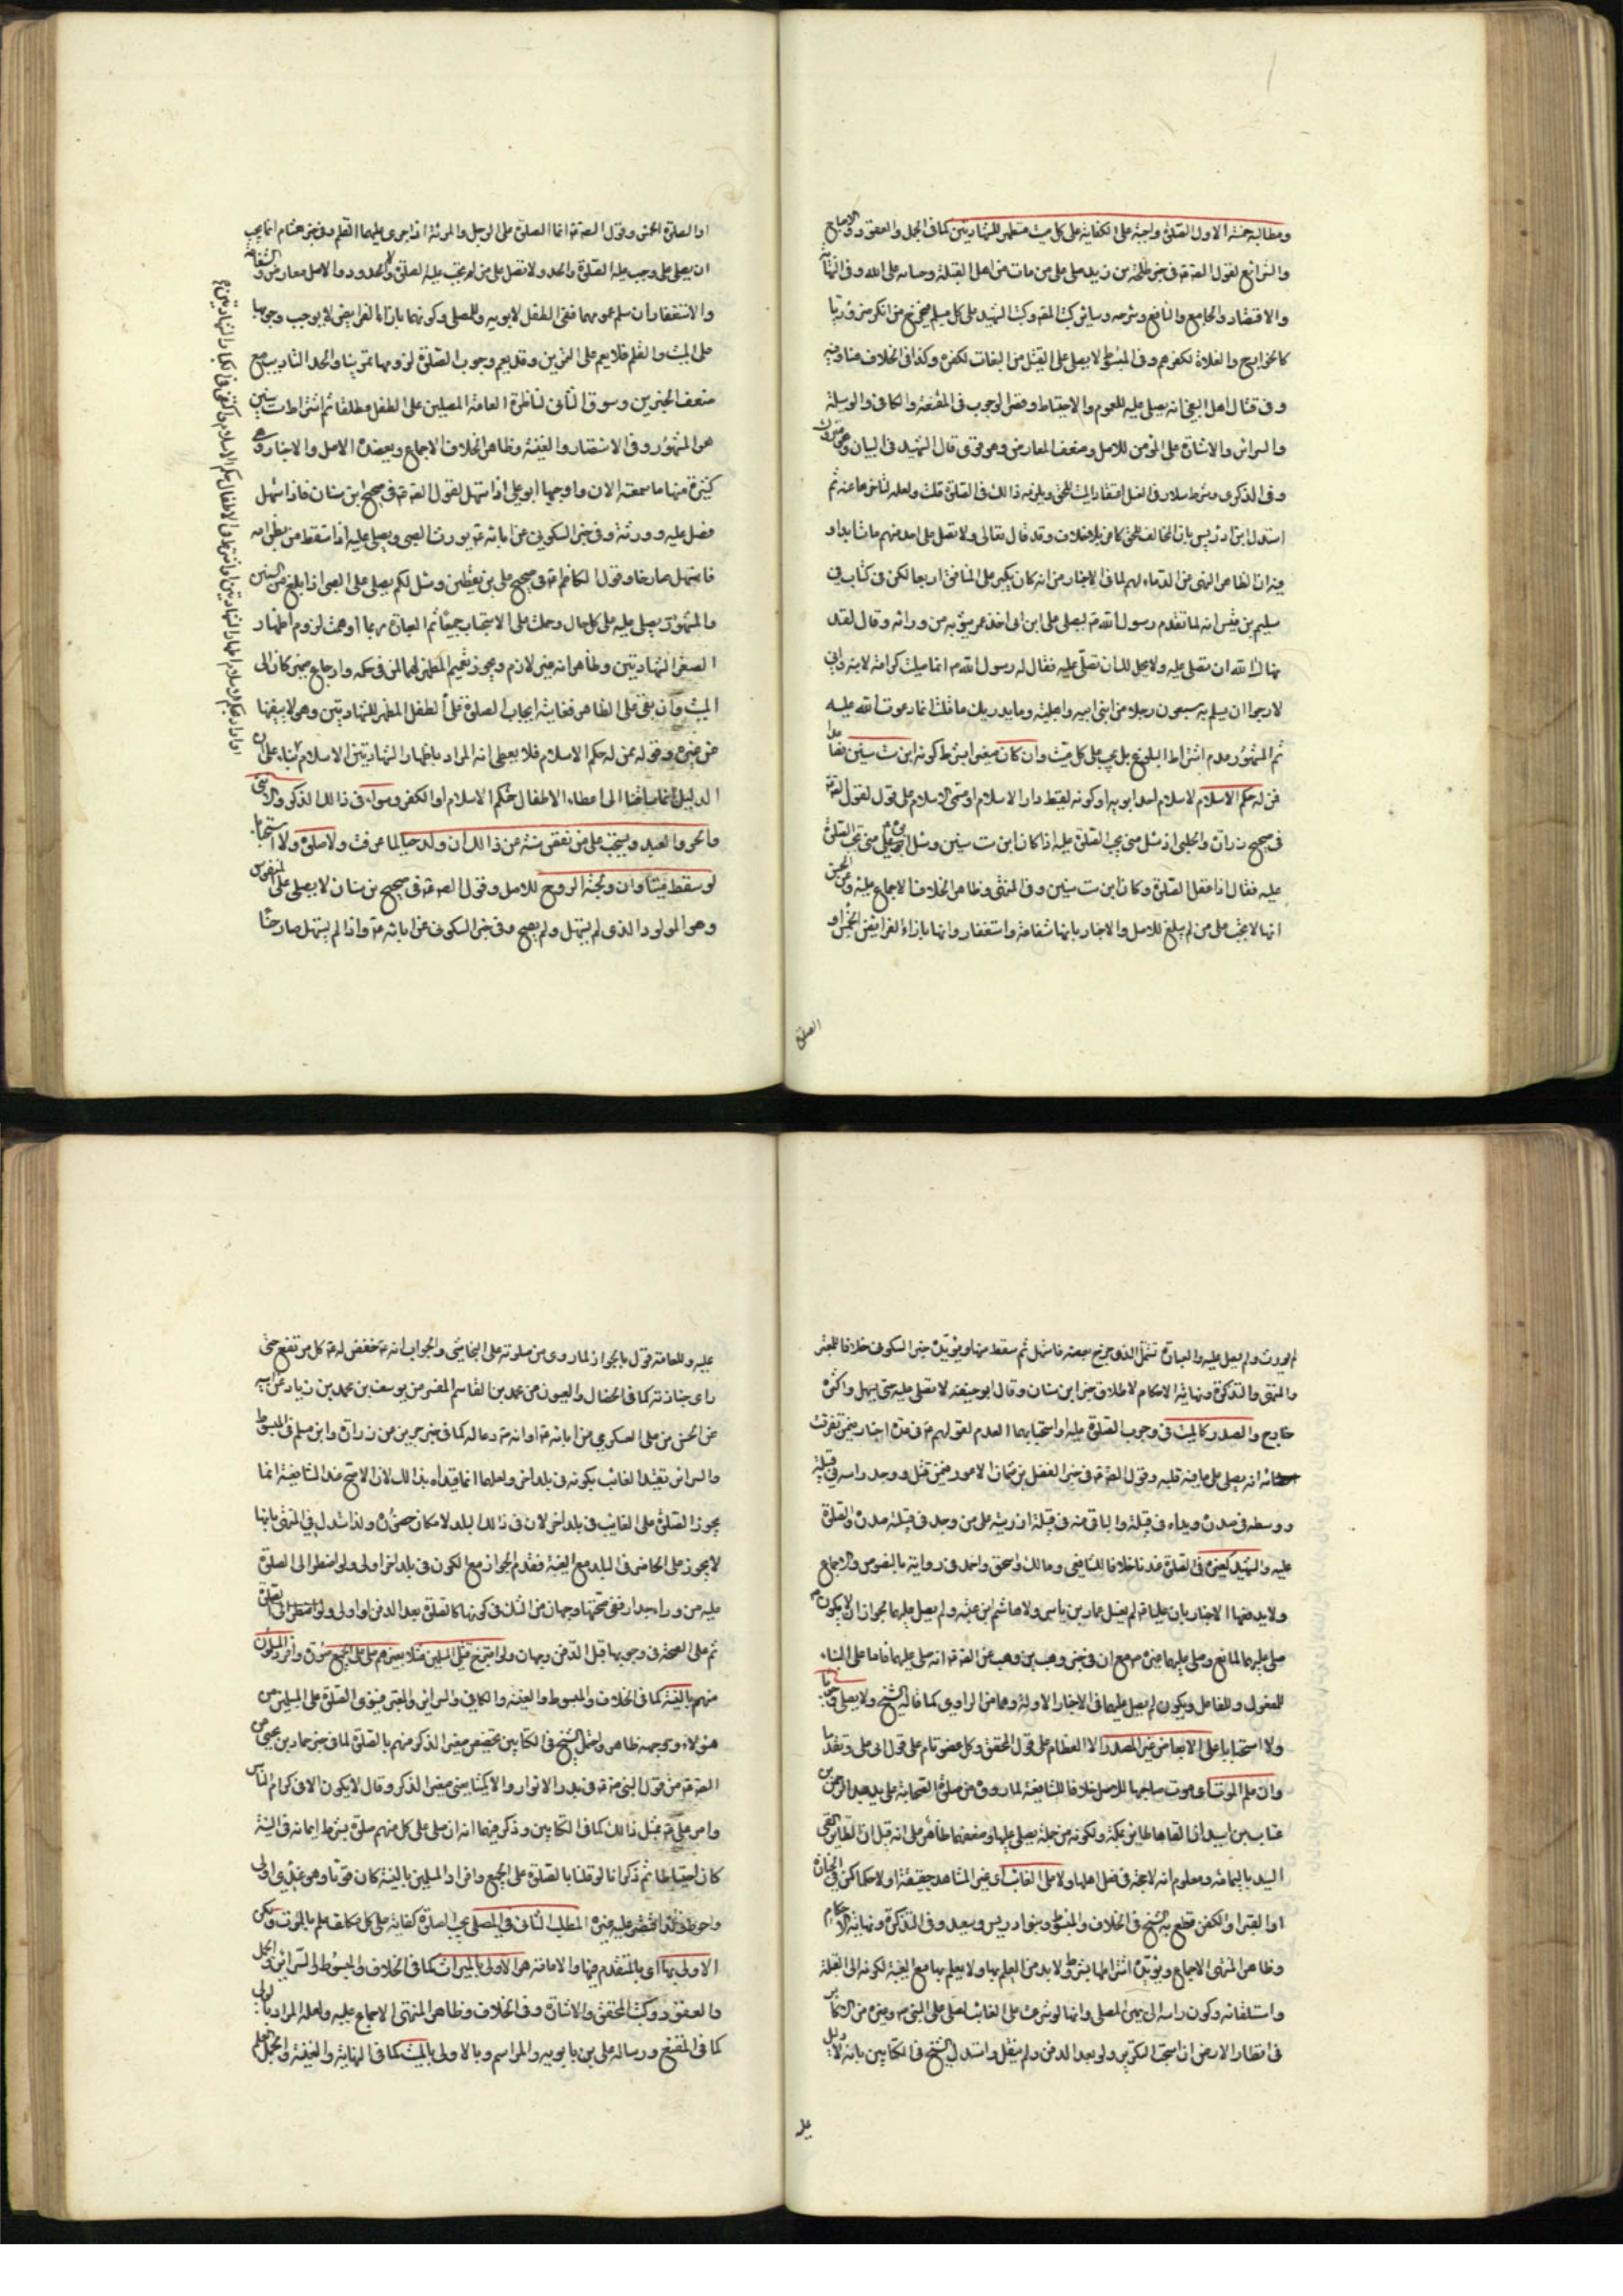 ومطالبه خمسة الاول الصلوة واجبة على الكفاية على كل ميت مظهر للشهادتين كما في الجمل والعقود والاصباح
والشرائع لقول الصادق في خبر طلحة بن زيد صل على من مات من اهل القبلة وحسابه على الله وفي النهاية
والاقتصاد والجامع والنافع وشرحه وسائر كتب المصنف وكتب الشهيد على كل مسلم فيخرج من انكر ضروريا
كالخوارج والغلاة لكفرهم وفي المبسوط لا يصلى على القتيل من البغاة لكفره وكذا في الخلاف هنا وفيه
وفي قتال اهل البغي انه يصلى عليه للعموم والاحتياط وقصر الوجوب في المقنعة والكافي والوسيلة
والسرائر والاشارة على المؤمن للاصل وضعف المعارض وهو قوي قال الشهيد في البيان
وفي الذكرى وشرط سلار في الغسل اعتقاد الميت للحق ويلزمه ذلك في الصلوة قلت ولعله لتأخرها عنه ثم
استدل ابن ادريس بان المخالف للحق كافر بلا خلاف وقد قال تعالى ولا تصل على احد منهم مات ابدا و
فيه ان الظاهر النهي من الدعاء لهم لما في الاخبار من انه كان يكبر على المنافق اربعا لكن في كتاب
سليم بن قيس انه لما تقدم رسول الله يصلي على ابن ابي اخذ عمر بثوبه من ورائه وقال لقد
نهاك الله ان تصلي عليه ولا يحل لك ان تصلي عليه فقال له رسول الله انما صليت كرامة لابنه واني
لارجوا ان يسلم به سبعون رجلا من بني ابيه واهل بيته وما يدريك ما قلت انما دعوت الله عليه
ثم المشهور عدم اشتراط البلوغ بل يجب على كل ميت وان كان صغيرا بشرط كونه ابن ست سنين فصاعدا
ممن له حكم الاسلام لاسلام احد ابويه او كونه لقيط دار الاسلام او مسبي الاسلام على قول لقول الصادق
في صحيح زرارة والحلبي اذ سئل متى تجب الصلوة عليه اذا كان ابن ست سنين وسئل متى تجب الصلوة
عليه فقال اذا عقل الصلوة وكان ابن ست سنين وفي المنتهى وظاهر الخلاف الاجماع عليه وعن الحسن
انها لا تجب على من لم يبلغ للاصل والاخبار بانها شفاعة واستغفار وانها بازاء الفرائض الخمس او
الصلوة
او الصلوة الخمس وقول الصادق انما الصلوة على الرجل والمرئة اذا جرى عليهما القلم وفي خبر هشام انما يجب
ان يصلى على من وجب عليه الصلوة والحد ولا تصل على من لم تجب عليه الصلوة ولا الحدود والاصل معارض والشفاعة
والاستغفار ان سلم عمومهما ففي الطفل لابويه وللمصلي وكونها بازاء الفرائض لا يوجب وجوبها
على الميت والقلم فلا يعم على التمرين وقد يعم وجوب الصلوة لزومها تمرينا والحد التأديب مع
ضعف الخبرين وسوق الثاني لمناظرة العامة المصلين على الطفل مطلقا ثم اشتراط ست سنين
هو المشهور وفي الانتصار والغنية وظاهر الخلاف الاجماع ويعضده الاصل والاخبار وهي
كثيرة منها ما سمعته الان واوجبها ابو علي اذا استهل لقول الصادق في صحيح ابن سنان فاذا استهل
فصل عليه وورثه وفي خبر السكوني عن ابائه يورث الصبي ويصلى عليه اذا سقط من بطن امه
فاستهل صارخا وقول الكاظم في صحيح علي بن يقطين وسئل لكم يصلى على الصبي اذا بلغ من السنين
والشهور يصلى عليه على كل حال وحملت على الاستحباب جمعا ثم العبارة ربما اوهمت لزوم اظهار
الصغير الشهادتين وظاهر انه غير لازم ويجوز تعميم المظهر لهما لمن في حكمه وارجاع ضمير كان الى
الميت وان بقي على الظاهر فغايته ايجاب الصلوة على الطفل المظهر للشهادتين وهو لا ينفيها
عن غيره وقوله ممن له حكم الاسلام فلا يعطي انه المراد باظهار الشهادتين الاسلام بناء على ان
الدليل انما ساقنا الى اعطاء الاطفال حكم الاسلام او الكفر وسواء في ذلك الذكر والانثى
والحر والعبد ويستحب على من نقص سنه عن ذلك ان ولد حيا لما عرفت ولا صلوة ولا استحبابا
لو سقط ميتا وان ولجته الروح للاصل وقول الصادق في صحيح بن سنان لا يصلى على المنفوس
وهو المولود الذي لم يستهل ولم يصح وفي خبر السكوني عن ابائه واذا لم يستهل صارخا
لم يورث ولم يصل عليه والعبارة تشمل الذي خرج بعضه فاستهل ثم سقط ميتا ويؤيده خبر السكوني خلافا للمعتبر
والمنتهى والتذكرة ونهاية الاحكام لاطلاق خبر ابن سنان وقال ابو حنيفة لا يصلى عليه حتى يستهل واكثره
خارج والصدر كالميت في وجوب الصلوة عليه او استحبابها العدم لقولهم في عدة اخبار فيمن تفرقت
اعضائه انه يصلى على ما فيه قلبه وقول الصادق في خبر الفضل بن عثمان الاعور فيمن قتل ووجد راسه في قبيلة
ووسطه في صدره ويداه في قبيلة والباقي منه في قبيلة اذ ديته على من وجد في قبيلته صدره والصلوة
عليه والشهيد كغيره في الصلوة عندنا خلافا للشافعي ومالك واسحق واحمد في رواية بالنصوص والاجماع
ولا يدفعها الاخبار بان عليا لم يغسل عمار بن ياسر ولا هاشم ابن عتبة ولم يصل عليهما لجواز ان لا يكون
صلى عليهما لمانع وصلى عليهما غيره مع ان في خبر وهب بن وهب عن الصادق انه صلى عليهما فاما على البناء
للمفعول وللفاعل ويكون لم يصل عليهما في الاخبار الاولة وهما من الراوي كما قاله الشيخ ولا يصلى وجوبا
ولا استحبابا على الابعاض غير الصدر الا العظام على قول المحقق وكل عضو تام على قول ابي علي وتقدما
وان علم الموت اي موت صاحبها للاصل خلافا للشافعية لما رووه من صلوة الصحابة على يد عبد الرحمن بن
عتاب بن اسيد اذ القاها طائر بمكة ولكونه من جملة يصلى عليها وضعفهما ظاهر على انه قيل ان الطاير القى
اليد باليمامة ومعلوم انه لا حجة في فعل اهلها ولا على الغائب اي غير المشاهد حقيقة او لا حكما كمن في الجنازة
او القبر او الكفن قطع به الشيخ في الخلاف والمبسوط وبنو ادريس وسعيد وفي التذكرة ونهاية الاحكام
وظاهر المنتهى الاجماع ويؤيده اشتراطها بشروط لا بد من العلم بها ولا يعلم بها مع الغيبة لكونه الى القبلة
واستلقائه وكون راسه الى يمين المصلي وانها لو شرعت على الغائب لصلي على النبي وغيره من الاكابر
في اقطار الارض ان استحب التكرير ولو بعد الدفن ولم ينقل واستدل الشيخ في الكتابين بانه لا دليل
عليه
عليه وللعامة قول بالجواز لما روى من صلوته على النجاشي والجواب انه خفض له كل مرتفع حتى
راى جنازته كما في الخصال والعيون من محمد بن القاسم المفسر من يوسف بن محمد بن زياد عن ابيه
عن الحسن بن علي العسكري من ابائه او انه دعا له كما في خبر حريز من زرارة وابن مسلم في المبسوط
والسرائر تقييد الغائب بكونه في بلد اخر ولعلهما انما قيداه بذلك لان الاصح عند الشافعية انما
يجوز الصلوة على الغائب في بلد اخر لان في ذلك البلد لامكان حضوره ولذا استدل في المنتهى بانها
لا يجوز على الحاضر في البلد مع الغيبة فعدم الجواز مع الكون في بلد اخر اولى ولو اضطر الى الصلوة
عليه من وراء جدار ففي صحتها وجهان من الشك في كونها كالصلوة بعد الدفن او اولى
ثم على الصحة في وجوبها قبل الدفن وجهان ولو امتزج قتلى المسلمين مثلا بغيرهم صلى على الجميع صورة وافرد المسلمون
منهم بالنية كما في الخلاف والمبسوط والغنية والكافي والسرائر والمعتبر فينوي الصلوة على المسلمين من
هؤلاء ووجهه ظاهر واحتمل الشيخ في الكتابين تخصيص صغير الذكر منهم بالصلوة لما في خبر حماد بن يحيى عن
الصادق من قول النبي في بدر لا تواروا الا كميشا يعني صغير الذكر وقال لا يكون الا في كرام الناس
وامر علي بمثل ذلك كما في الكتابين وذكر فيهما انه ان صلى على كل منهم صلوة بشرط ايمانه في النية
كان احتياطا ثم ذكر انا لو قلنا بالصلوة على الجميع وافراد المسلمين بالنية كان قويا وهو عندي اولى
واحوط ولذا اقتصر عليه غيره المطلب الثاني في المصلي تجب الصلوة كفاية على كل مكلف علم بالموت ولكن
الاولى بها اي بالتقدم فيها والامامة هو الاولى بالميراث كما في الخلاف والمبسوط والسرائر والجمل
والعقود وكتب المحقق والاشارة وفي الخلاف وظاهر المنتهى الاجماع عليه ولعله المراد بالولي
كما في المقنع ورسالة علي بن بابويه والمراسم وبالاولى بالميت كما في النهاية والغنية والجمل